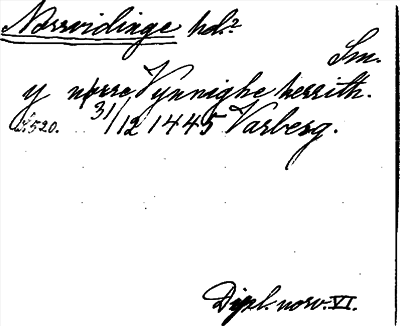 Norrvidinge hd.?
Sm.
y nørre Vynnighe herrith.
N:520. 31/12 1445 Varberg.
Dipl. norv. VI.